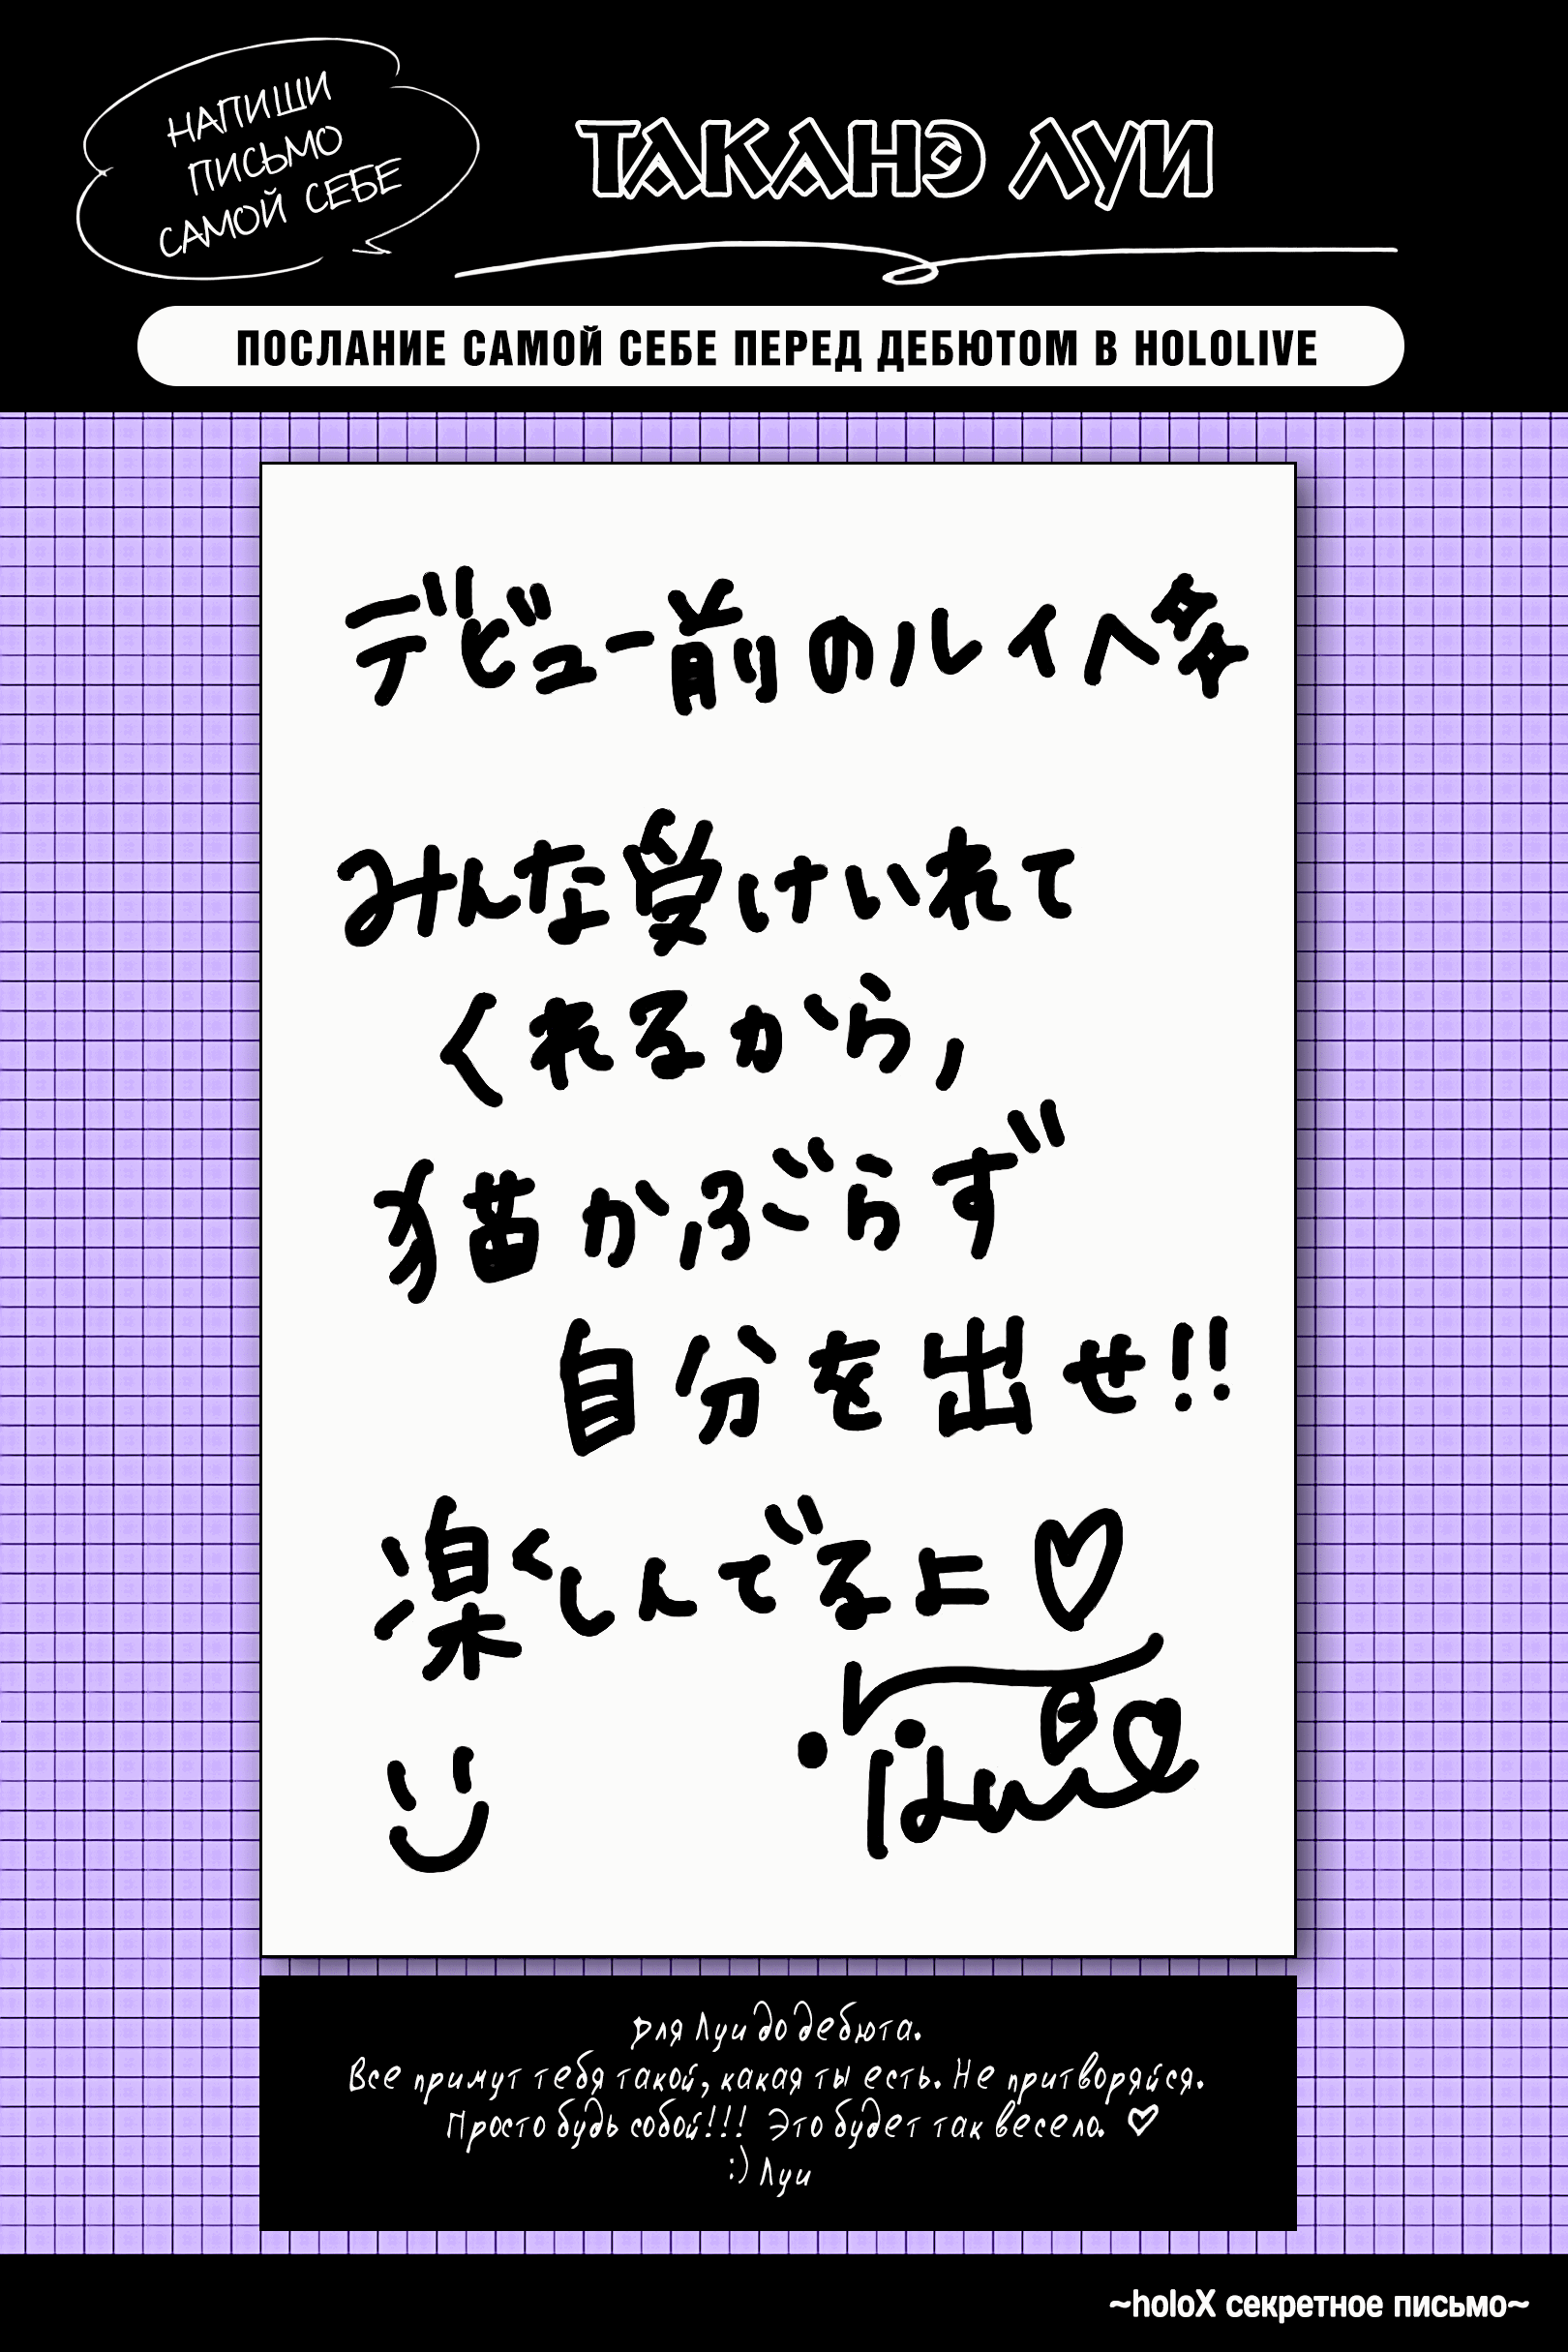 НАПИШИ
ПИСЬМО
САМОЙ СЕБЕ
ТАКАНЭ ЛУИ
ПОСЛАНИЕ САМОЙ СЕБЕ ПЕРЕД ДЕБЮТОМ В HOLOLIVE
デビュー前のルイへ
みんな受けいれて
くれるから,
猫かぶらず
自分を出せ!!
楽しんでるよ♡
Для Луи до дебюта.
Все примут тебя такой, какая ты есть. Не притворяйся.
Просто будь собой!!! Это будет так весело. ♡
:) Луи
~holoX секретное письмо~